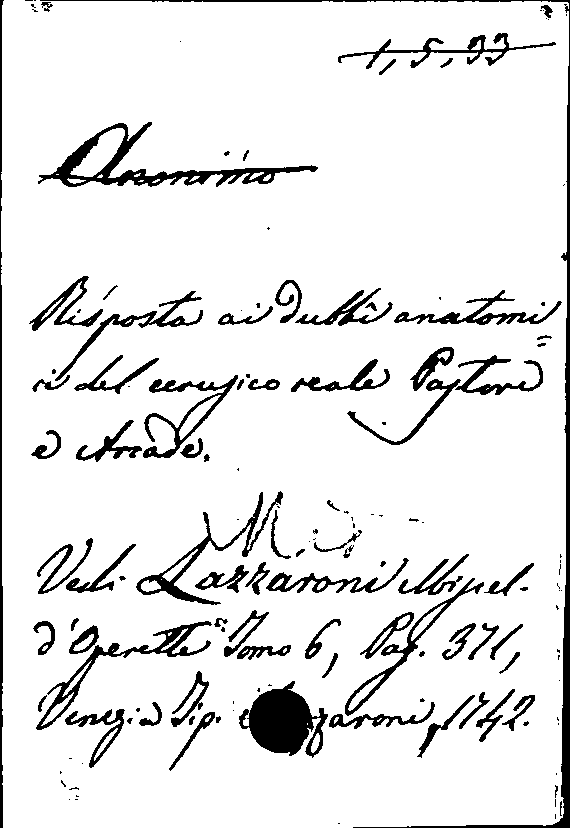 1, 5, 33
Anonimo
Risposta ai dubbî anatomi=
ci del cerugico reale Pastore
e Arcade.
Vedi Lazzaroni Miscel-
d'Operette Tomo 6, Pag. 371,
Venezia Tip. zaroni, 1742.